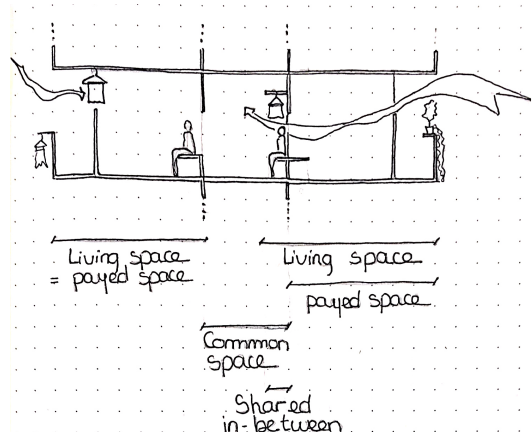 Living space
= payed space
Living space
payed space
Common
space
Shared
in-between